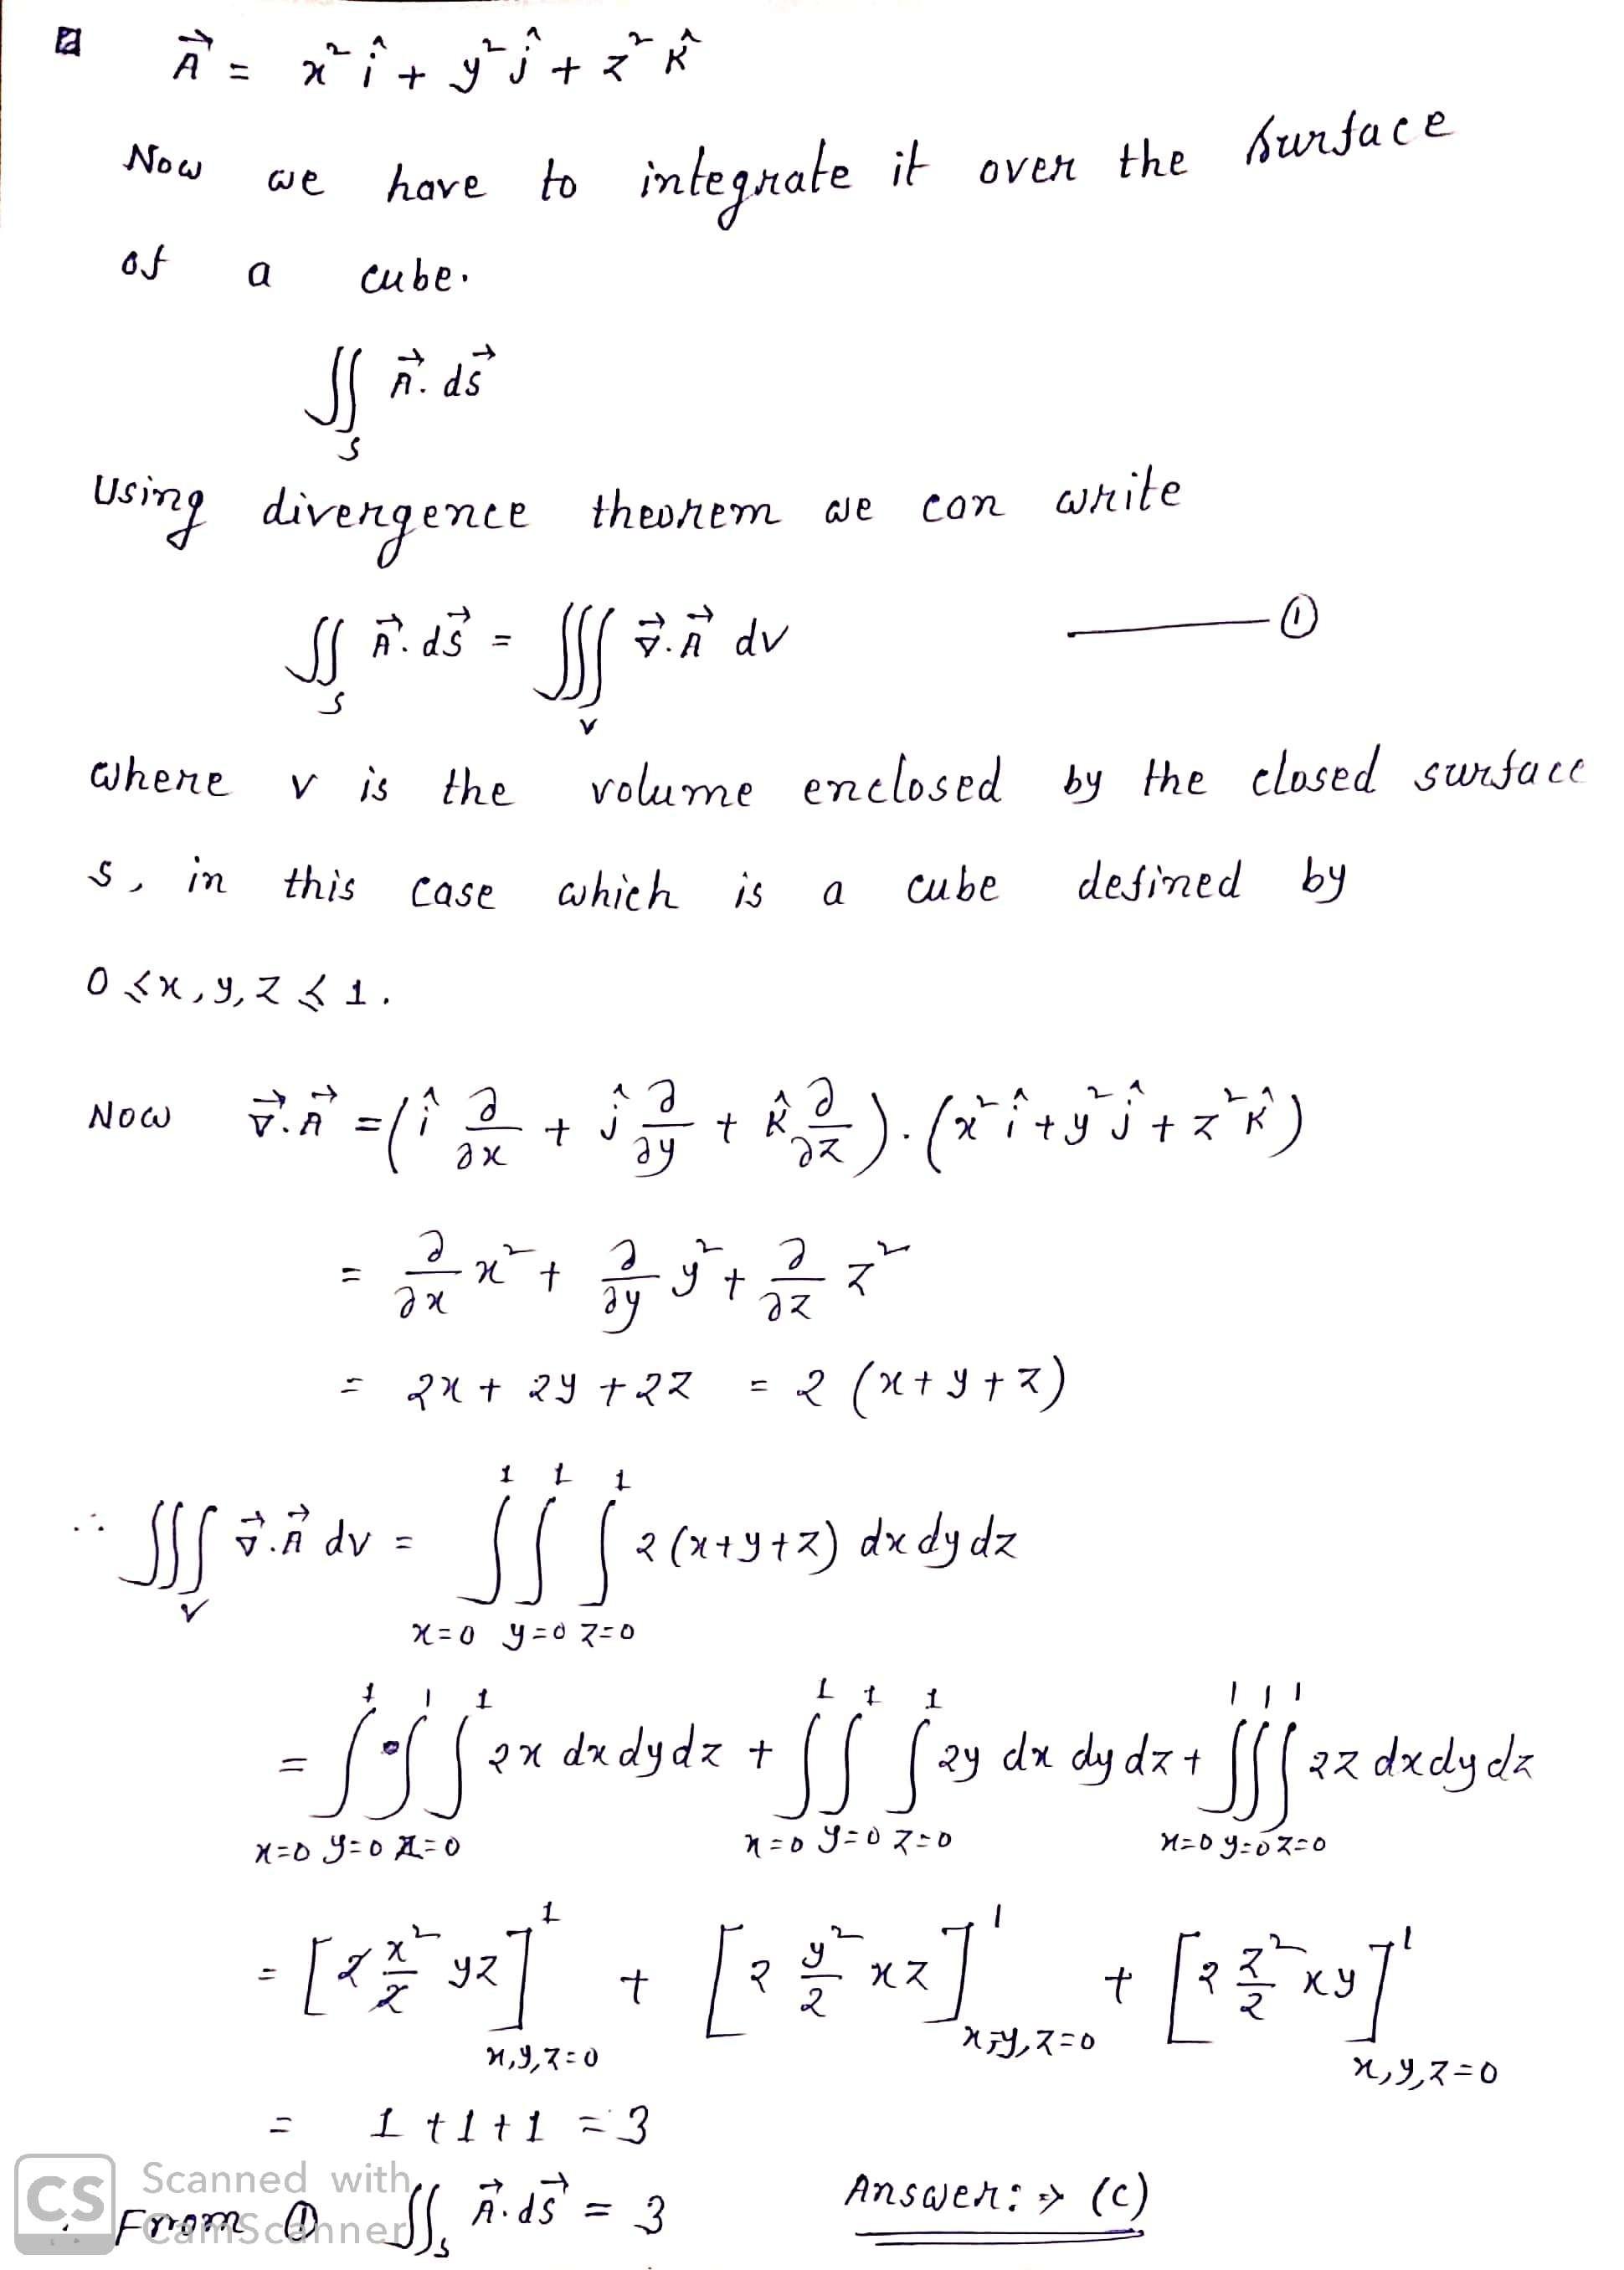 A⃗ = x² î + y² ĵ + z² k̂
Now we have to integrate it over the surface
of a cube.
∬_S A⃗. ds⃗
Using divergence theorem we can write
∬_S A⃗. ds⃗ = ∭_V ∇⃗.A⃗ dv ——— ①
where v is the volume enclosed by the closed surface
s, in this case which is a cube defined by
0 ≤ x, y, z ≤ 1.
Now ∇⃗.A⃗ = (î ∂/∂x + ĵ ∂/∂y + k̂ ∂/∂z).(x² î + y² ĵ + z² k̂)
= ∂/∂x x² + ∂/∂y y² + ∂/∂z z²
= 2x + 2y + 2z = 2 (x + y + z)
∴ ∭_V ∇⃗.A⃗ dv = ∫_{x=0}^{1} ∫_{y=0}^{1} ∫_{z=0}^{1} 2 (x+y+z) dx dy dz
= ∫_{x=0}^{1} ∫_{y=0}^{1} ∫_{z=0}^{1} 2x dx dy dz + ∫_{x=0}^{1} ∫_{y=0}^{1} ∫_{z=0}^{1} 2y dx dy dz + ∫_{x=0}^{1} ∫_{y=0}^{1} ∫_{z=0}^{1} 2z dx dy dz
= [2 x²/2 yz]^{1}_{x,y,z=0} + [2 y²/2 xz]^{1}_{x,y,z=0} + [2 z²/2 xy]^{1}_{x,y,z=0}
= 1 + 1 + 1 = 3
∴ From ① ∬_S A⃗. ds⃗ = 3 Answer: ⇒ (c)
CS Scanned with
CamScanner